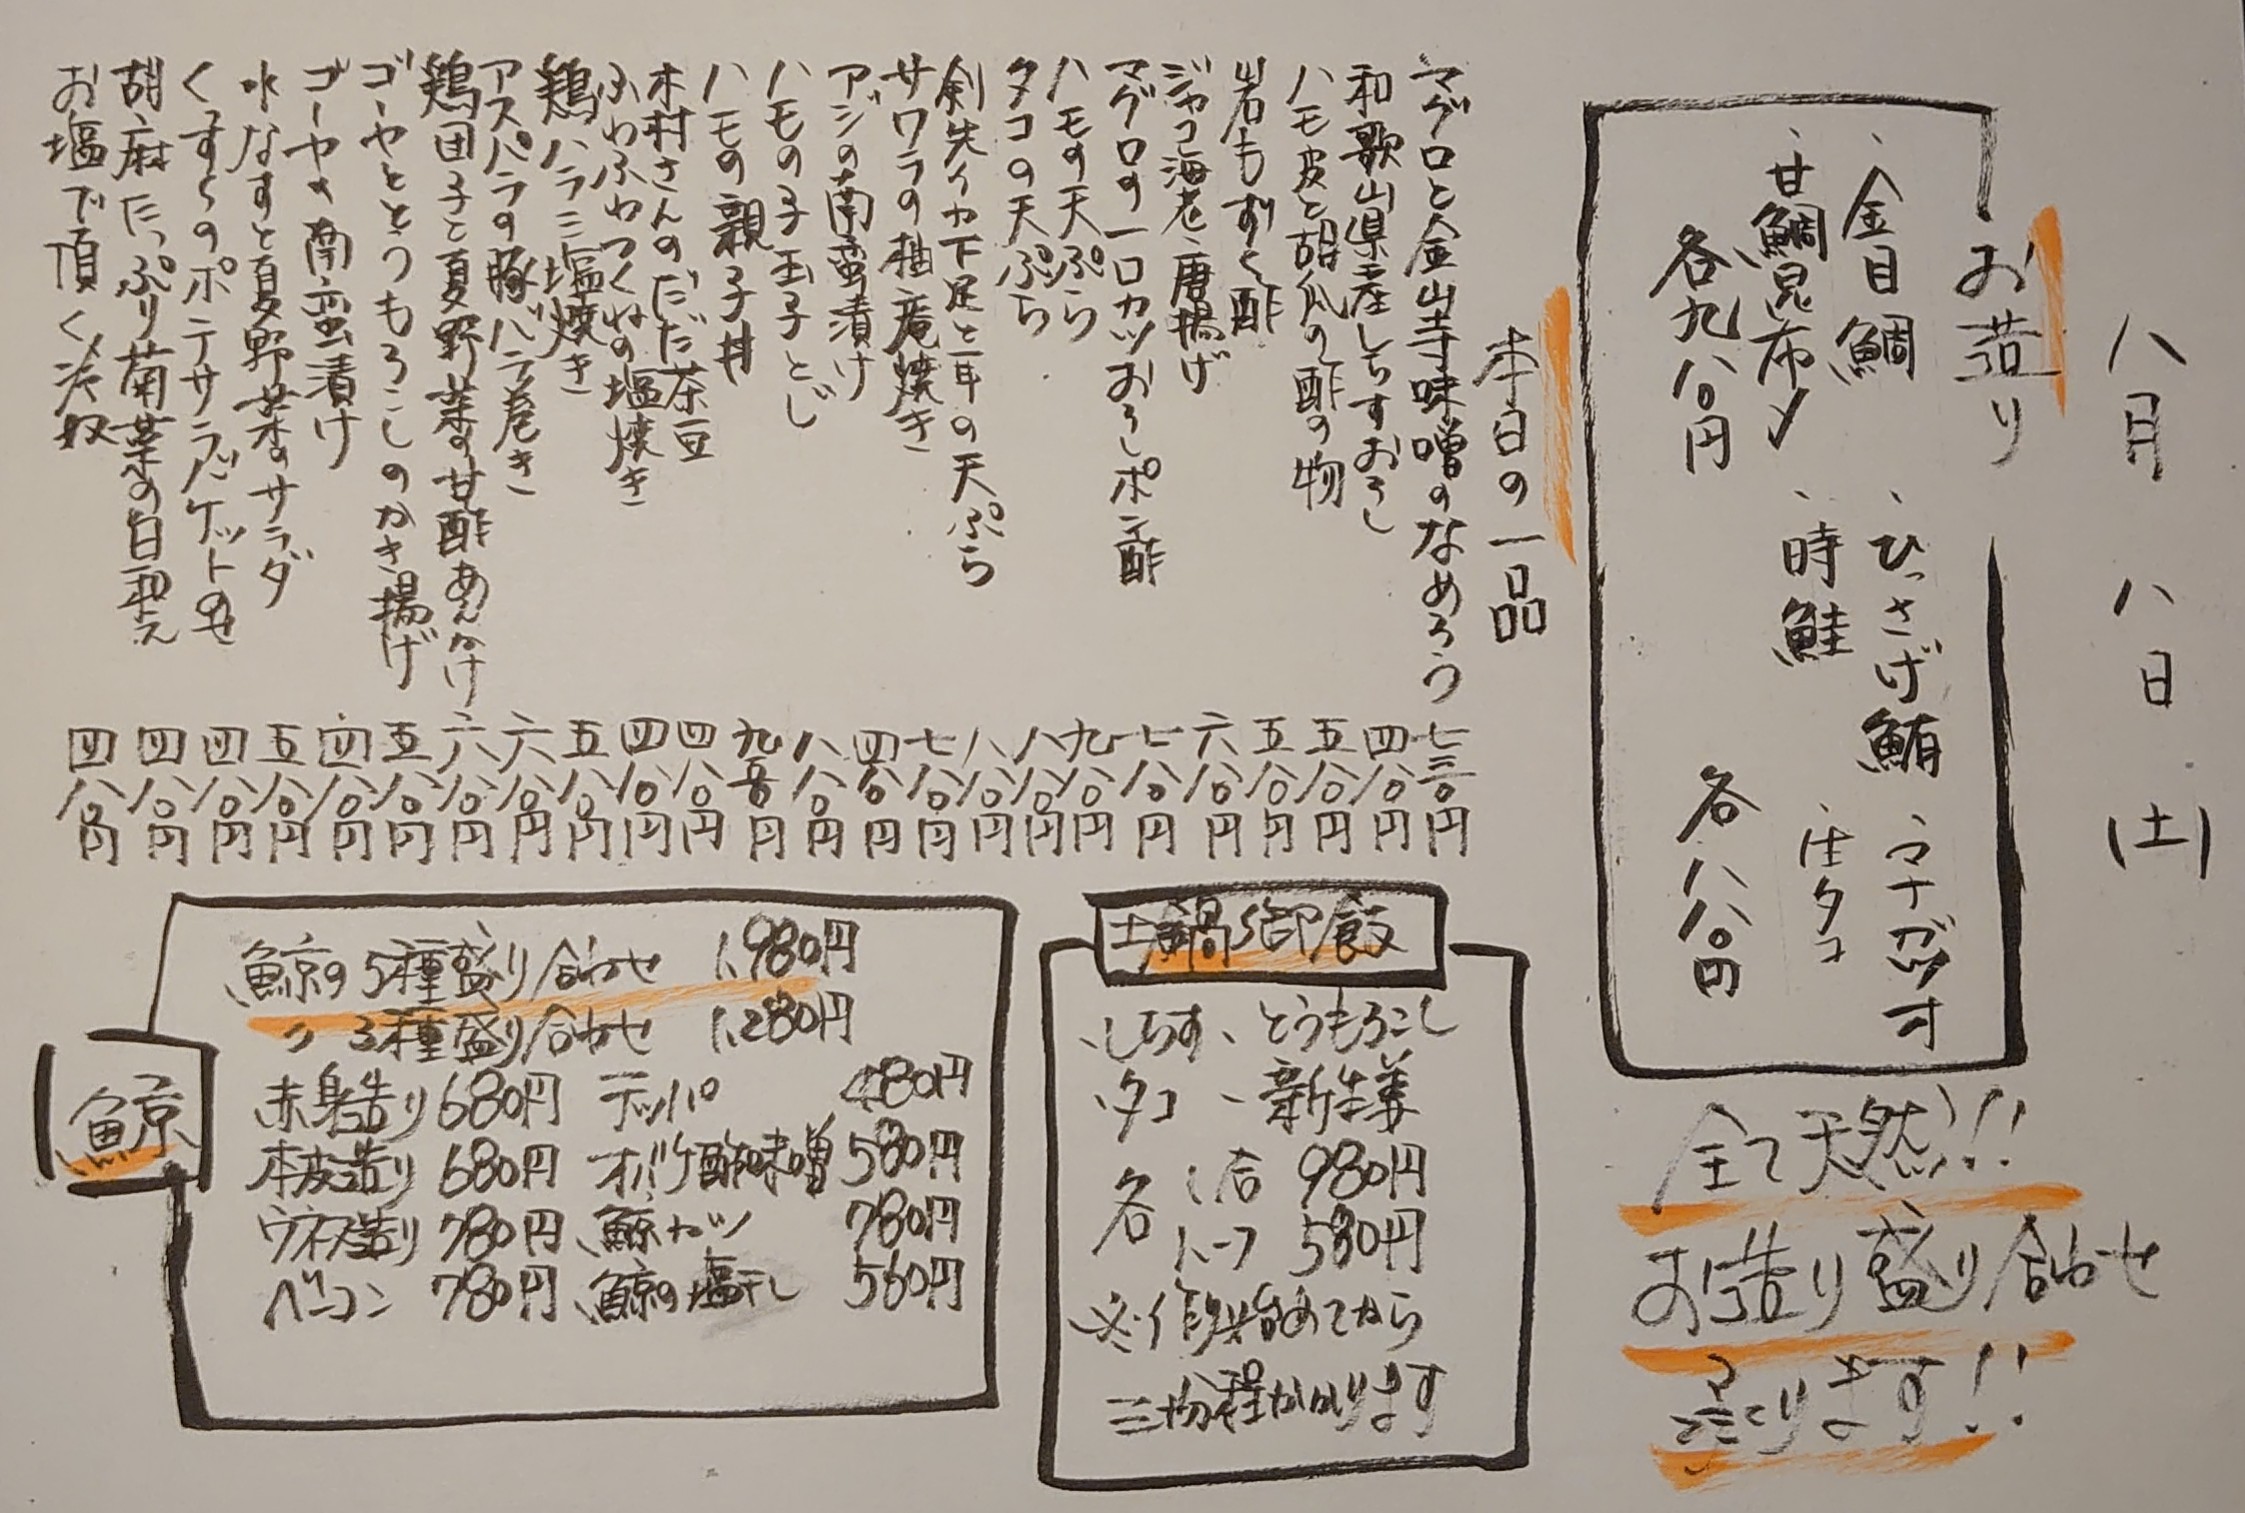 八月八日(土)
お造り
、金目鯛 、ひっさげ鮪 、マナガツオ
、甘鯛昆布〆 、時鮭 、活タコ
各九八〇円 各八八〇円
全て天然!!
お造り盛り合わせ
承ります!!
本日の一品
マグロと金山寺味噌のなめろう 七三〇円
和歌山県産しらすおろし 四八〇円
ハモ皮と胡瓜の酢の物 五八〇円
岩もずく酢 五八〇円
ジャコ海老唐揚げ 六八〇円
マグロの一口カツおろしポン酢 七八〇円
ハモの天ぷら 九八〇円
タコの天ぷら 八八〇円
剣先イカ下足と耳の天ぷら 八八〇円
サワラの柚庵焼き 七八〇円
アジの南蛮漬け 四八〇円
ハモの子玉子とじ 八八〇円
ハモの親子丼 九八〇円
木村さんのだだ茶豆 四八〇円
ふわふわつくねの塩焼き 四八〇円
鶏ハラミ塩焼き 五八〇円
アスパラの豚バラ巻き 六八〇円
鶏団子と夏野菜の甘酢あんかけ 六八〇円
ゴーヤととうもろこしのかき揚げ 五八〇円
ゴーヤの南蛮漬け 四八〇円
水なすと夏野菜のサラダ 五八〇円
くずくのポテサラバケット 四八〇円
胡麻たっぷり菊菜の白和え 四八〇円
お塩で頂く冷奴 四八〇円
土鍋御飯
、しらす 、とうもろこし
、タコ 、新生姜
各 1合 980円
ハーフ 580円
※作り始めてから
三十分程かかります
鯨
鯨の5種盛り合わせ 1,980円
〃 3種盛り合わせ 1,280円
赤身造り 680円 テッパ 480円
本皮造り 680円 オバケ酢味噌 580円
ウネス造り 780円 鯨カツ 780円
ベーコン 780円 鯨の塩干し 560円